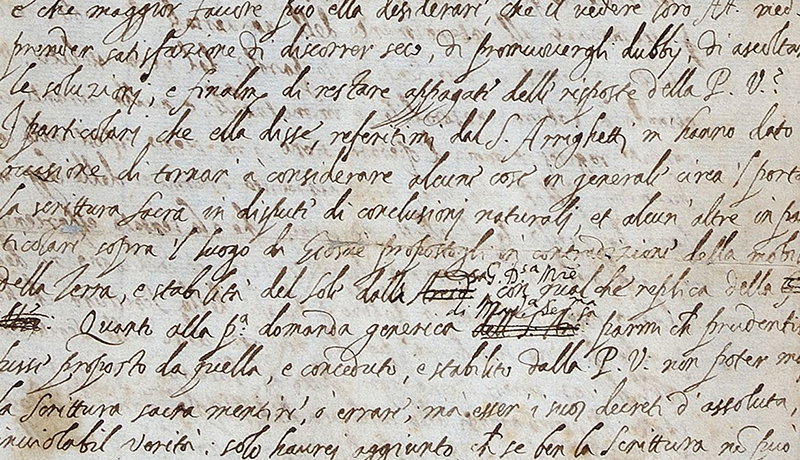 e che maggior favore può ella desiderare, che il vedere loro AA. med
prender satisfazione di discorrer seco, di promuovergli dubbij, di ascoltar
le soluzionj, e finalm di restare appagate delle risposte della P. V.?
I particolarj che ella disse, referitimi dal S. Arrighetti m hanno dato
occasione di tornar à considerare alcune cose in generale circa 'l porta
la scrittura sacra in dispute di conclusionj naturalj, et alcun'altre in pa
ticolare sopra 'l luogo di Giosuè propostogli in contradizione della mobil
della Terra, e stabilità del Sole dalla con qualche replica della
Quanto alla p.a domanda generica di M. Ser.ma parmi ch prudentis
fusse proposto da quella, e conceduto, e stabilito dalla P. V. non poter ma
la Scrittura sacra mentire, ò errare, ma esser i suoi decreti d'assoluta,
inviolabil verità. solo haurej aggiunto, ch se ben la Scrittura nō può